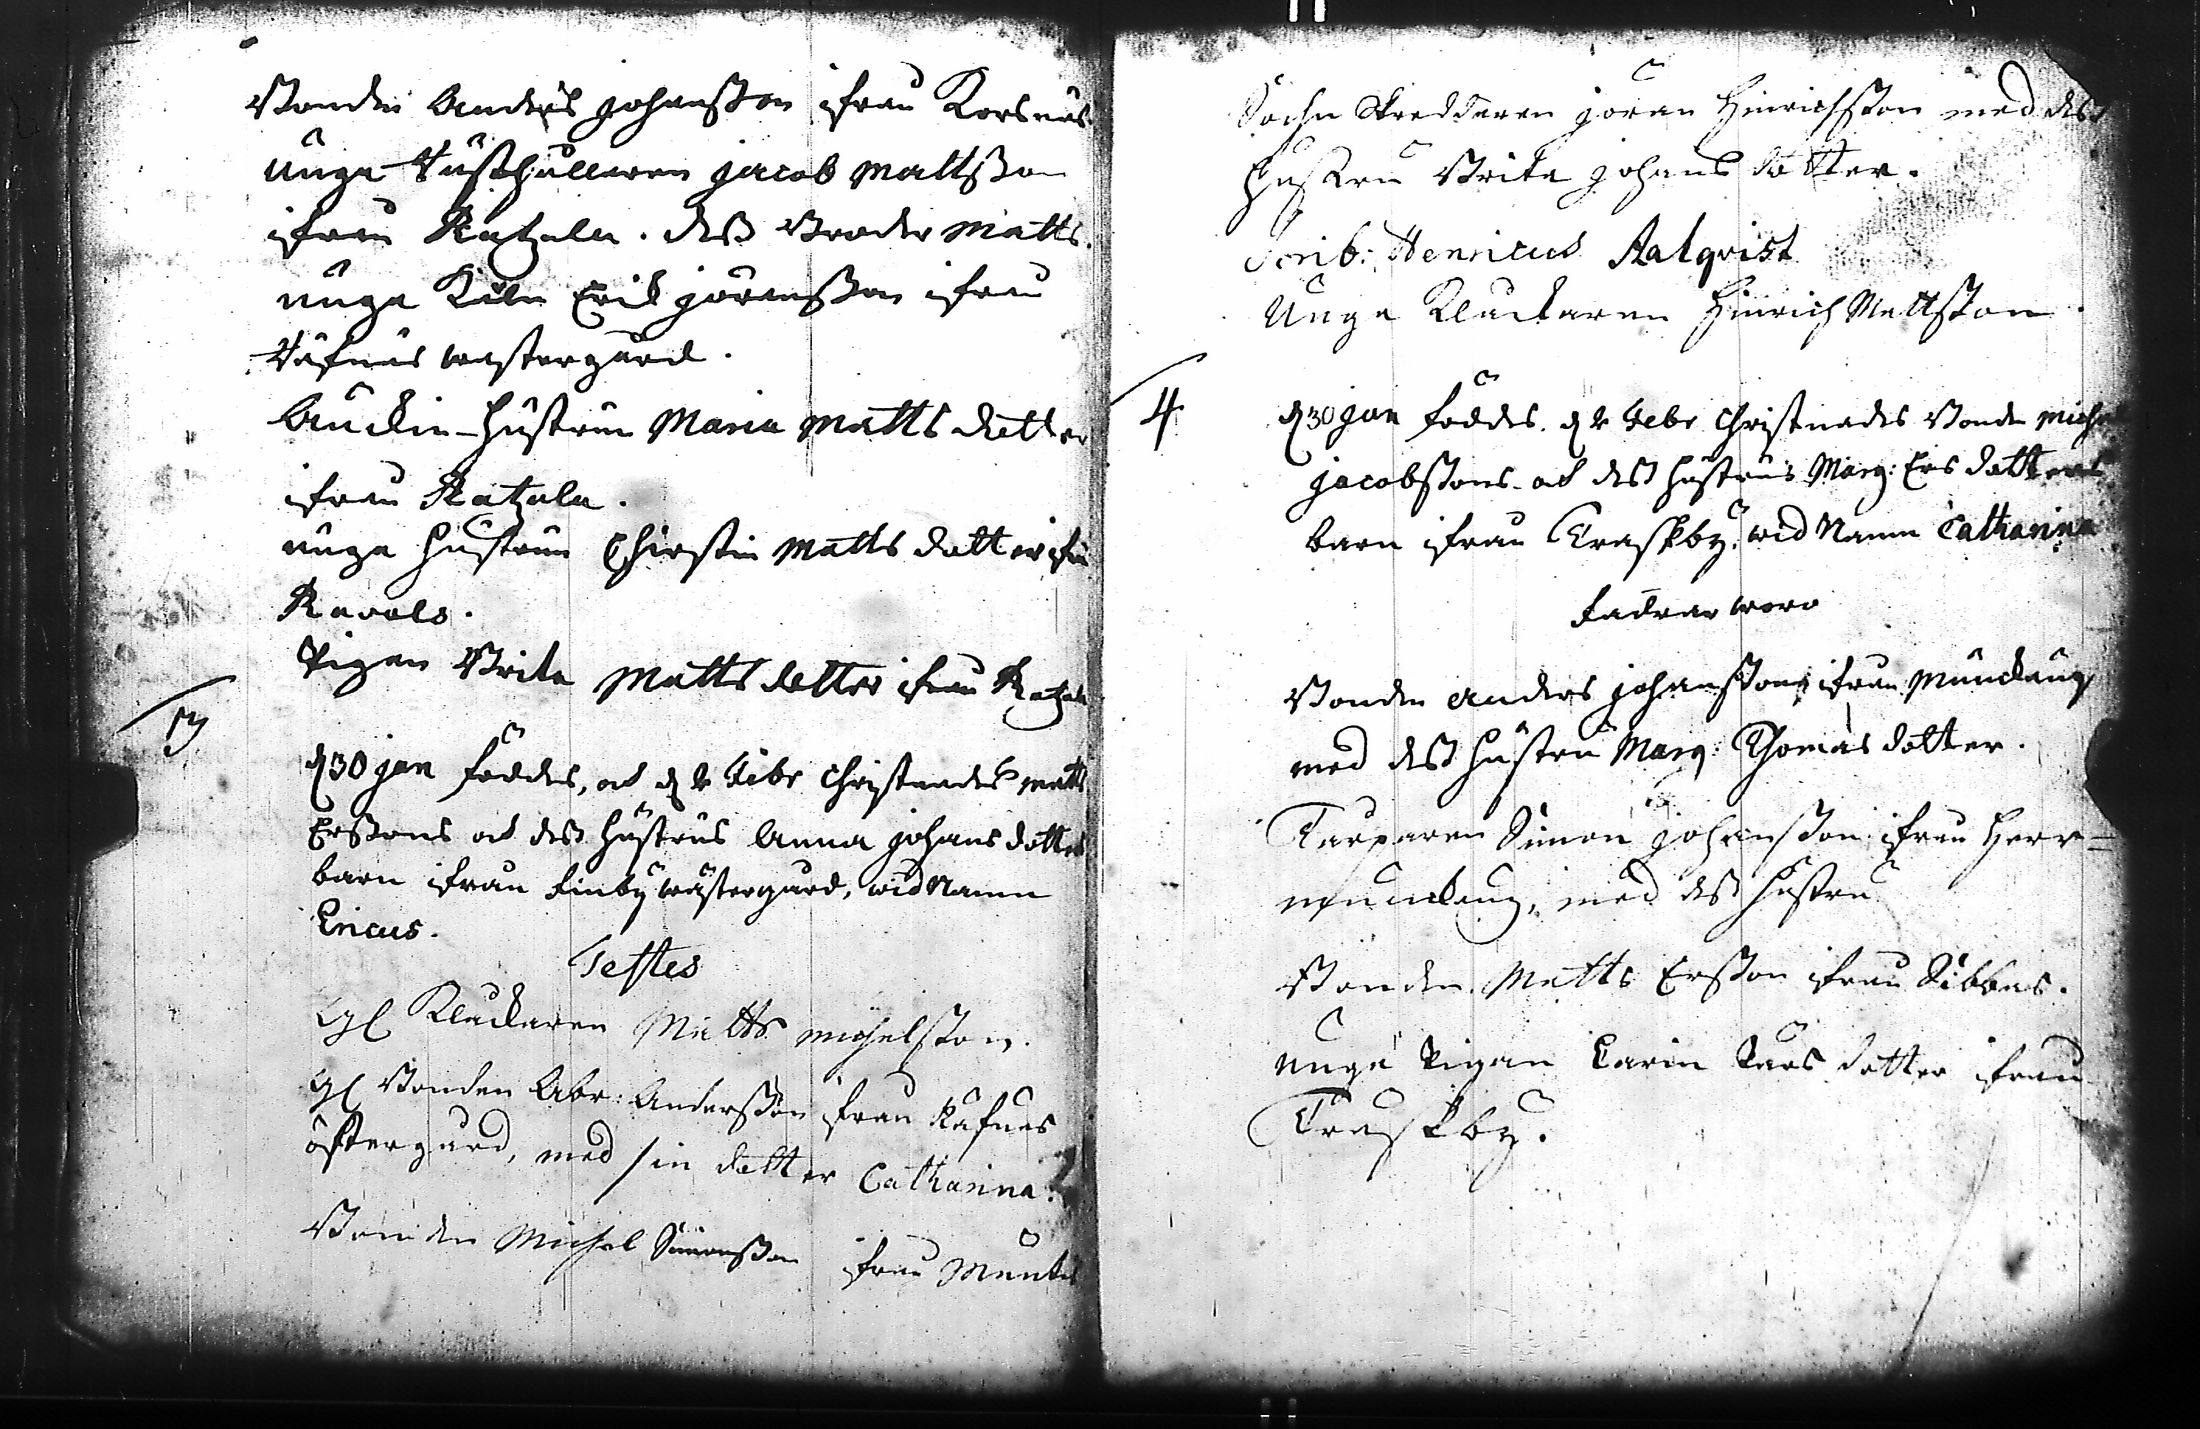 Bonden Anders Johansson ifrån Korsnäs.
unga Husshållaren Jacob Mattsson
ifrån Ratzala. dess Broder Matts.
unga Karln Erik Jöransson ifrån
Västergård.
Änckie-Hustrun Maria Matts dotter
ifrån Ratzala.
unga Hustrun Chirstin Matts dotter ifrå
Ravals.
Pigan Brita Matts dotter ifrån Ratzala
3
d 30 Jan föddes, ock d 2 Febr Christnades Matts
Erssons ock dess Hustrus Anna Johans dotters
barn ifrån Finby wästergård, wid Namn
Ericus.
Testes
Gl Klackaren Matts Michelsson.
Gl Bonden Abr: Andersson ifrån Rafnäs
östergård, med sin dotter Catharina.
Bonden Michel Simonsson ifrån
Sochn Skreddaren Jöran Hinrichsson med dess
Hustru Brita Johans dotter.
Scrib: Henricus Aalqvist
Unga Klackaren Hinrich Mattsson
4
d 30 Jan föddes. d 2 Febr Christnades Bonden Michel
Jacobssons ock dess Hustrus Marg: Ers dotters
barn ifrån Träskby, wid Namn Catharina
Fadrar woro
Bonden Anders Johansson ifrån Munckäng
med dess Hustru Marg: Thomas dotter.
Torparen Simon Johansson ifrån Herr-
munckäng, med dess Hustru
Bonden Matts Ersson ifrån Sibbas.
unga Pigan Carin Lars dotter ifrån
Träskby.